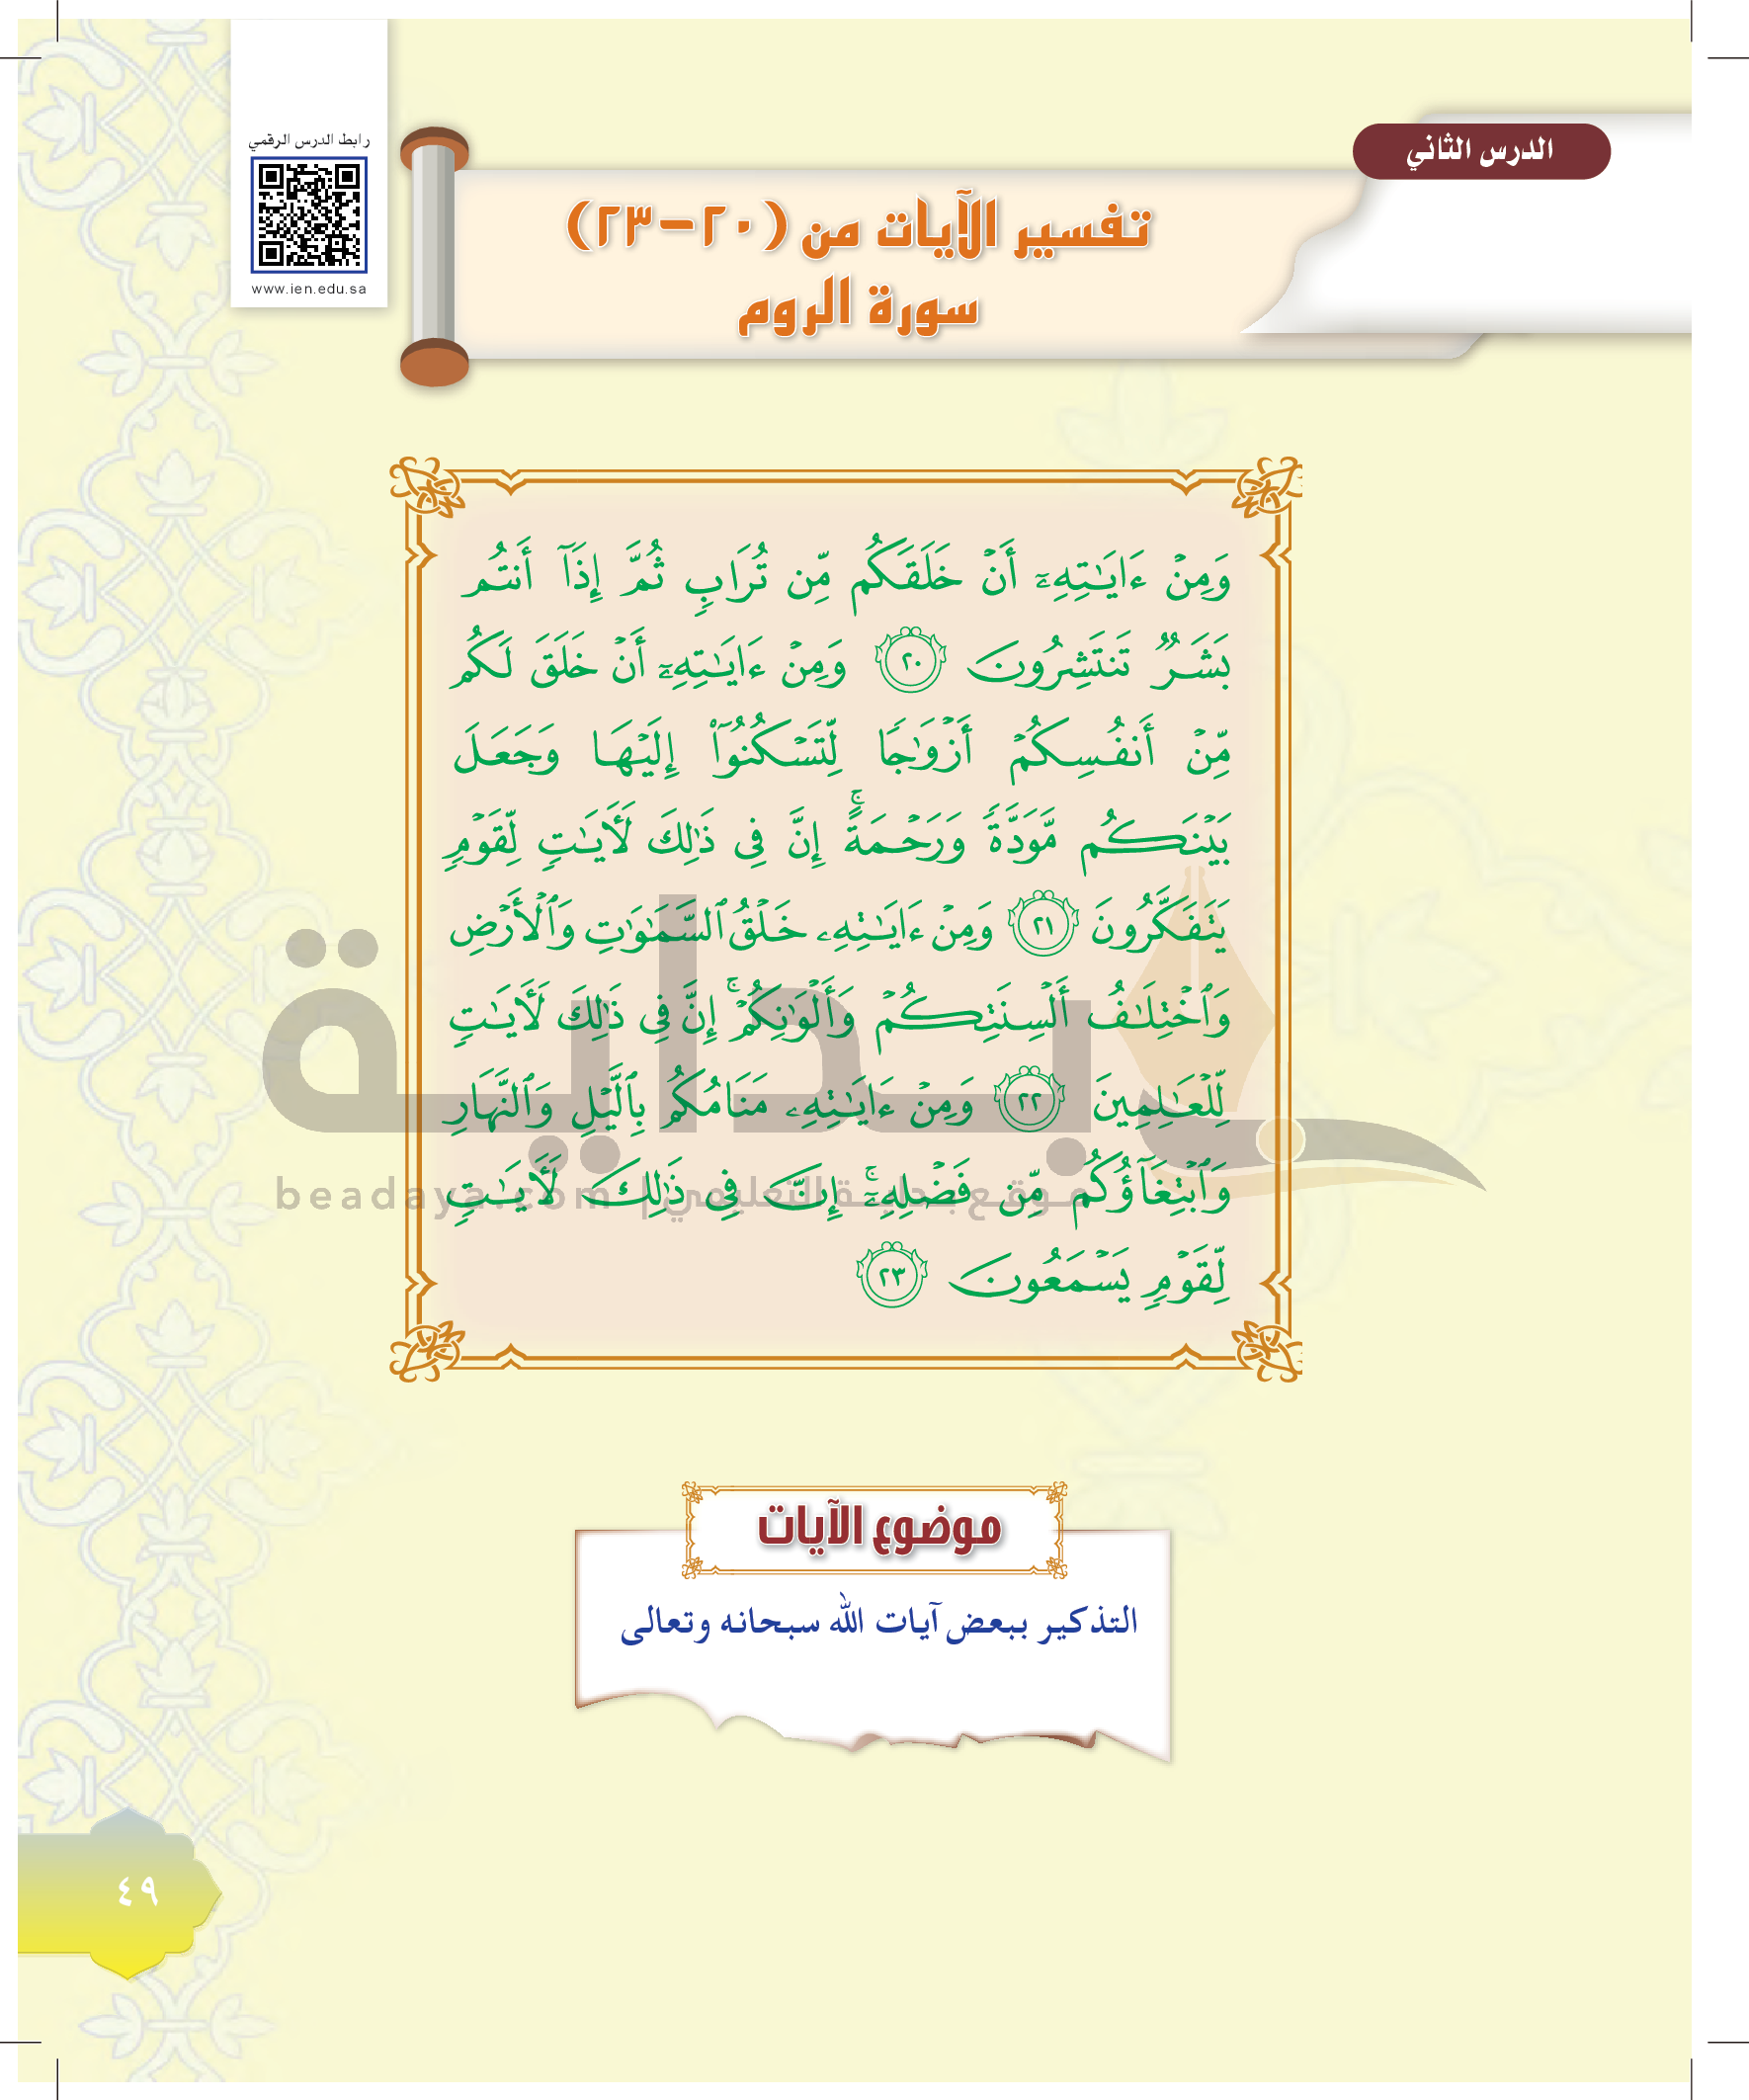 الدرس الثاني
رابط الدرس الرقمي
www.ien.edu.sa
تفسير الآيات من (٢٠-٢٣)
سورة الروم
وَمِنۡ ءَايَٰتِهِۦٓ أَنۡ خَلَقَكُم مِّن تُرَابٖ ثُمَّ إِذَآ أَنتُم
بَشَرٞ تَنتَشِرُونَ ٢٠ وَمِنۡ ءَايَٰتِهِۦٓ أَنۡ خَلَقَ لَكُم
مِّنۡ أَنفُسِكُمۡ أَزۡوَٰجٗا لِّتَسۡكُنُوٓاْ إِلَيۡهَا وَجَعَلَ
بَيۡنَكُم مَّوَدَّةٗ وَرَحۡمَةًۚ إِنَّ فِي ذَٰلِكَ لَأٓيَٰتٖ لِّقَوۡمٖ
يَتَفَكَّرُونَ ٢١ وَمِنۡ ءَايَٰتِهِۦ خَلۡقُ ٱلسَّمَٰوَٰتِ وَٱلۡأَرۡضِ
وَٱخۡتِلَٰفُ أَلۡسِنَتِكُمۡ وَأَلۡوَٰنِكُمۡۚ إِنَّ فِي ذَٰلِكَ لَأٓيَٰتٖ
لِّلۡعَٰلِمِينَ ٢٢ وَمِنۡ ءَايَٰتِهِۦ مَنَامُكُم بِٱلَّيۡلِ وَٱلنَّهَارِ
وَٱبۡتِغَآؤُكُم مِّن فَضۡلِهِۦٓۚ إِنَّ فِي ذَٰلِكَ لَأٓيَٰتٖ
لِّقَوۡمٖ يَسۡمَعُونَ ٢٣
بداية
موقع بداية التعليمي | beadaya.com
موضوع الآيات
التذكير ببعض آيات الله سبحانه وتعالى
٤٩